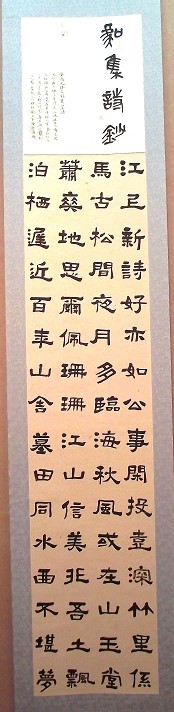 集詩鈔
江上新詩好亦如公事閑投壺深竹里係
馬古松間夜月多臨海秋風或在山玉堂
蕭爽地思爾佩珊珊江山信美非吾土飄
泊栖遲近百年山舍墓田同水曲不堪夢